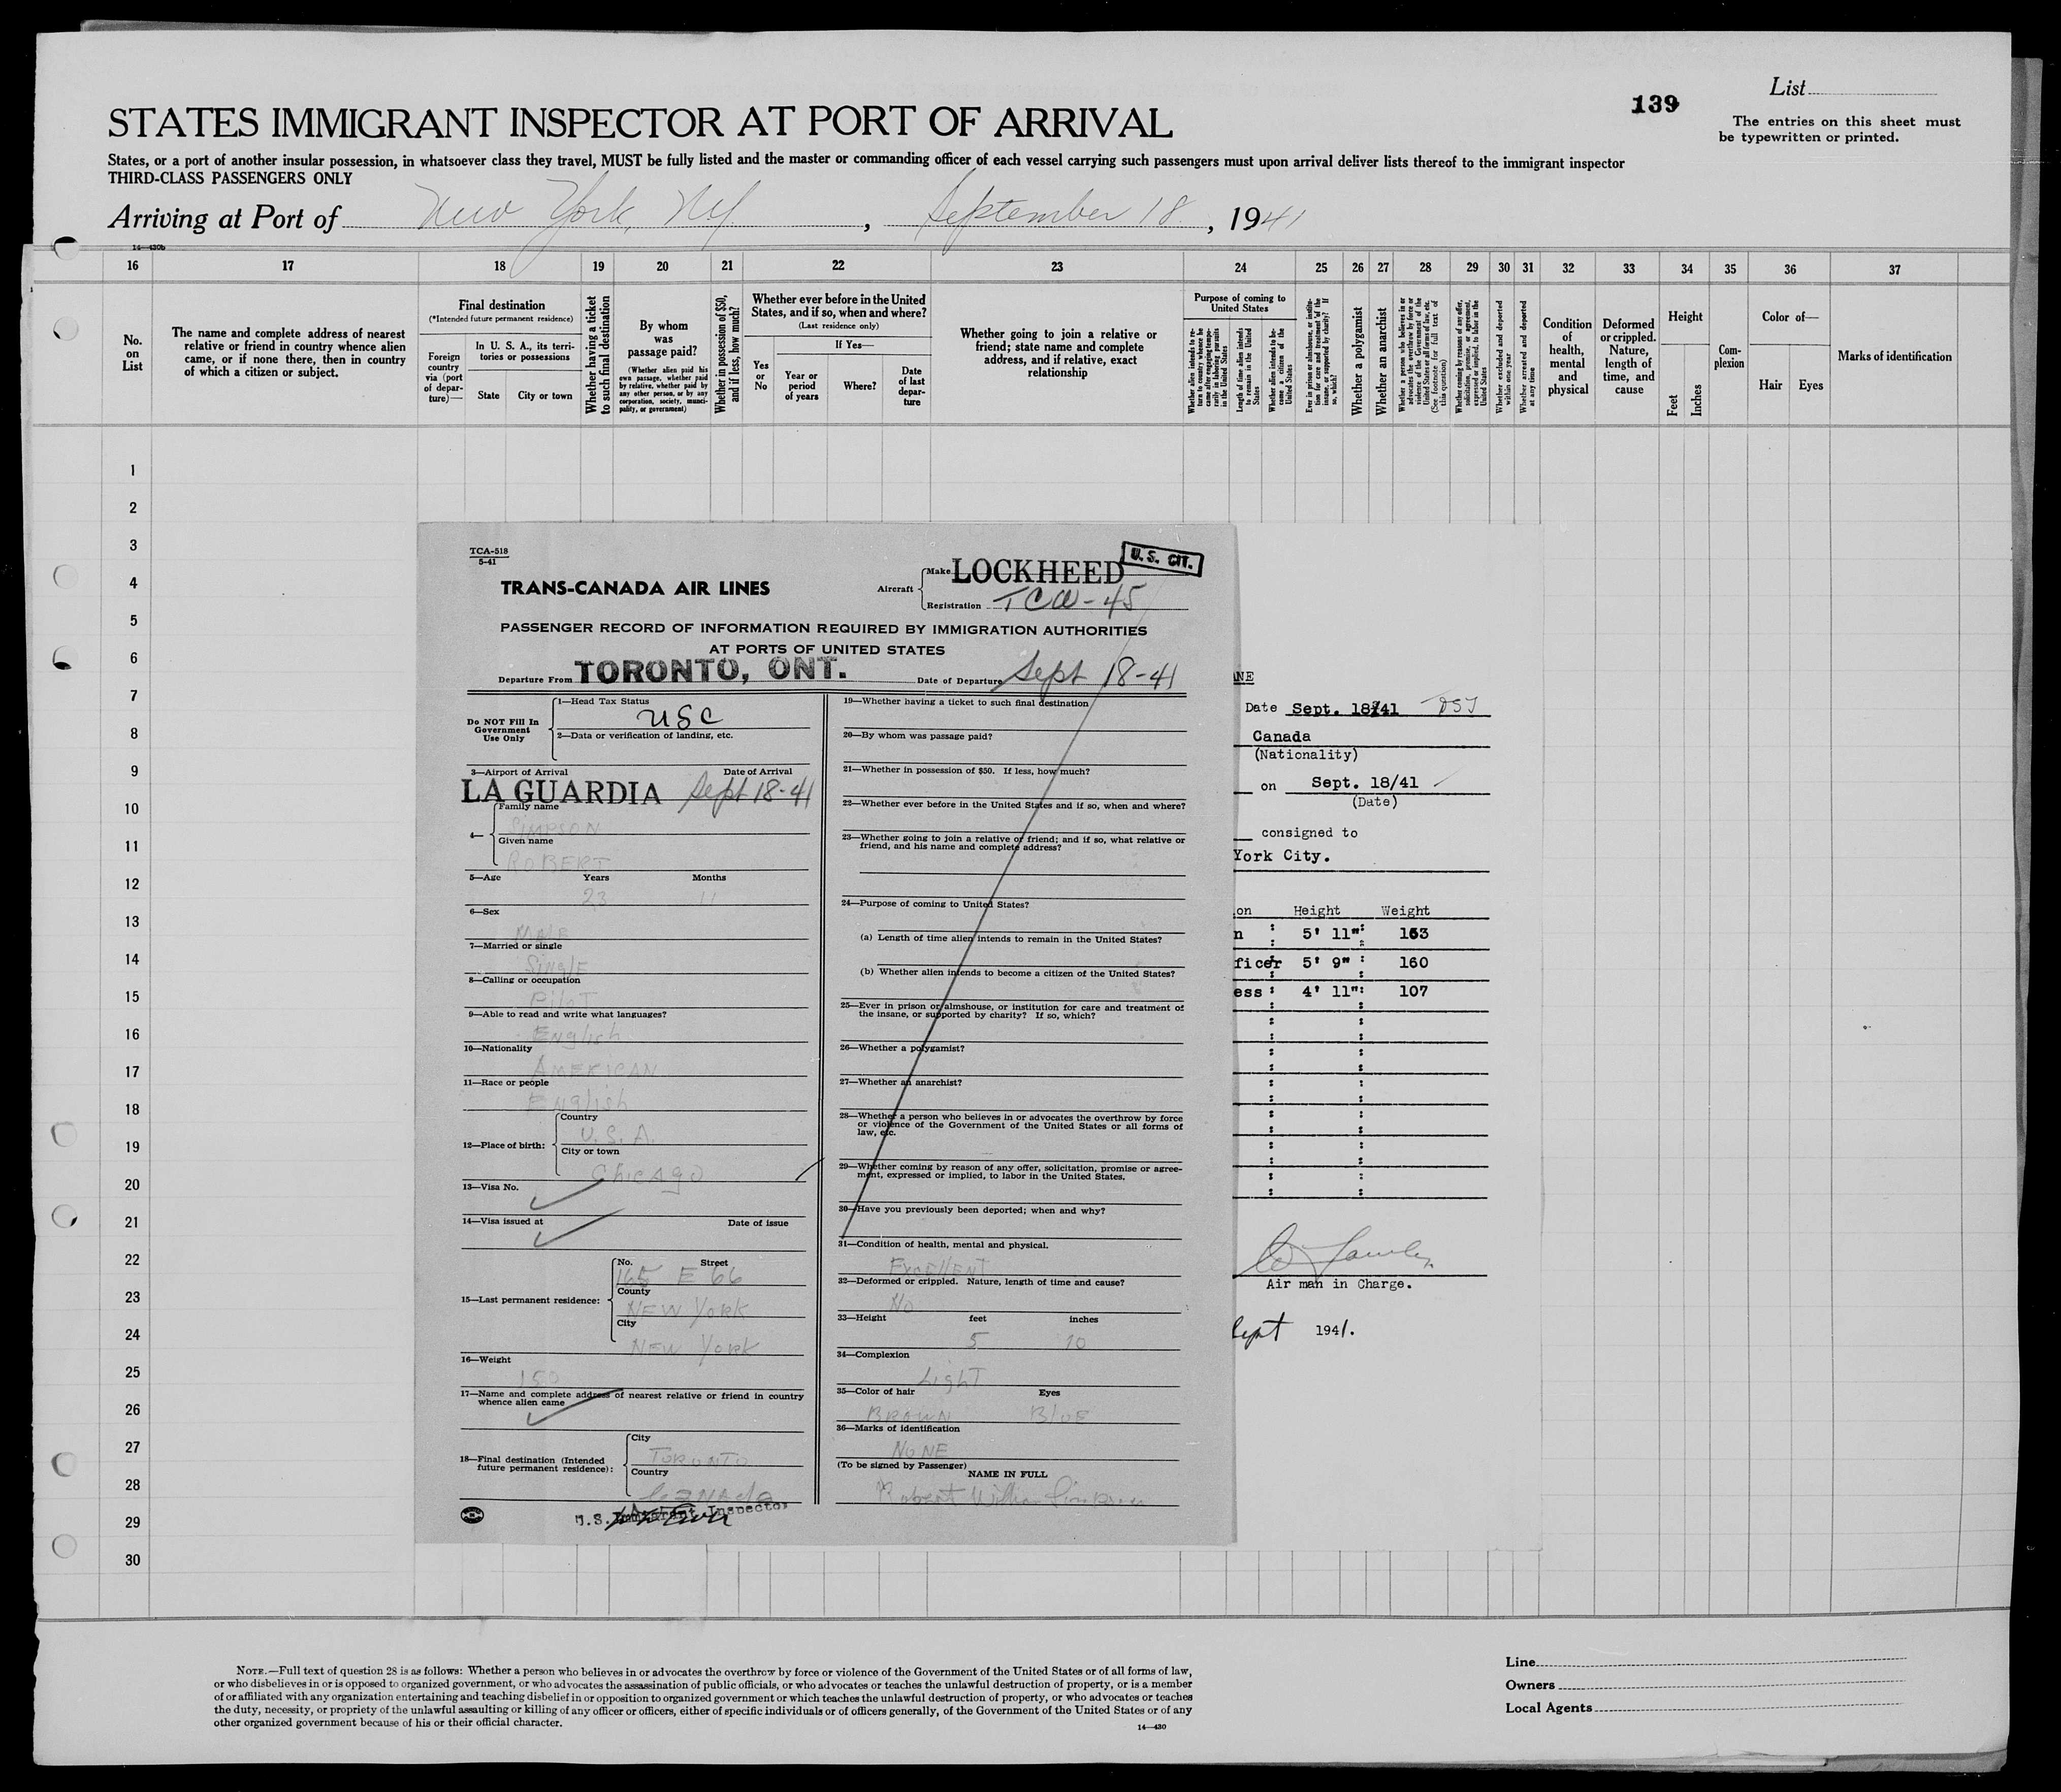 139
List
The entries on this sheet must
be typewritten or printed.
STATES IMMIGRANT INSPECTOR AT PORT OF ARRIVAL
States, or a port of another insular possession, in whatsoever class they travel, MUST be fully listed and the master or commanding officer of each vessel carrying such passengers must upon arrival deliver lists thereof to the immigrant inspector
THIRD-CLASS PASSENGERS ONLY
Arriving at Port of New York, NY, September 18, 1941
14—430b
16 17 18 19 20 21 22 23 24 25 26 27 28 29 30 31 32 33 34 35 36 37
No.
on
List
The name and complete address of nearest
relative or friend in country whence alien
came, or if none there, then in country
of which a citizen or subject.
Final destination
(*Intended future permanent residence)
Foreign
country
via (port
of depar-
ture)—
In U. S. A., its terri-
tories or possessions
State City or town
Whether having a ticket
to such final destination
By whom
was
passage paid?
(Whether alien paid his
own passage, whether paid
by relative, whether paid by
any other person, or by any
corporation, society, munici-
pality, or government)
Whether in possession of $50,
and if less, how much?
Whether ever before in the United
States, and if so, when and where?
(Last residence only)
Yes
or
No
If Yes—
Year or
period
of years
Where?
Date
of last
depar-
ture
Whether going to join a relative or
friend; state name and complete
address, and if relative, exact
relationship
Purpose of coming to
United States
Whether alien intends to re-
turn to country whence he
came after engaging tempo-
rarily in laboring pursuits
in the United States
Length of time alien intends
to remain in the United
States
Whether alien intends to be-
come a citizen of the
United States
Ever in prison or almshouse, or institu-
tion for care and treatment of the
insane, or supported by charity? If
so, which?
Whether a polygamist
Whether an anarchist
Whether a person who believes in or
advocates the overthrow by force or
violence of the Government of the
United States or all forms of law, etc.
(See footnote for full text of
this question)
Whether coming by reason of any offer,
solicitation, promise, or agreement,
expressed or implied, to labor in the
United States
Whether excluded and deported
within one year
Whether arrested and deported
at any time
Condition
of
health,
mental
and
physical
Deformed
or crippled.
Nature,
length of
time, and
cause
Height
Feet
Inches
Com-
plexion
Color of—
Hair Eyes
Marks of identification
1
2
3
4
5
6
7
8
9
10
11
12
13
14
15
16
17
18
19
20
21
22
23
24
25
26
27
28
29
30
TCA-518
5-41
TRANS-CANADA AIR LINES
Aircraft
Make LOCKHEED
U. S. CIT.
Registration TCA-45
PASSENGER RECORD OF INFORMATION REQUIRED BY IMMIGRATION AUTHORITIES
AT PORTS OF UNITED STATES
Departure From TORONTO, ONT. Date of Departure Sept 18-41
Do NOT Fill In
Government
Use Only
1—Head Tax Status
USC
2—Data or verification of landing, etc.
3—Airport of Arrival Date of Arrival
LA GUARDIA Sept 18-41
4—
Family name
SIMPSON
Given name
ROBERT
5—Age Years Months
23 11
6—Sex
MALE
7—Married or single
Single
8—Calling or occupation
Pilot
9—Able to read and write what languages?
English
10—Nationality
AMERICAN
11—Race or people
English
12—Place of birth:
Country
U. S. A.
City or town
Chicago
13—Visa No.
14—Visa issued at Date of issue
15—Last permanent residence:
No. Street
165 E 66
County
NEW YORK
City
NEW YORK
16—Weight
150
17—Name and complete address of nearest relative or friend in country
whence alien came
18—Final destination (Intended
future permanent residence):
City
TORONTO
Country
Canada
U.S. Immigrant Inspector
19—Whether having a ticket to such final destination
20—By whom was passage paid?
21—Whether in possession of $50. If less, how much?
22—Whether ever before in the United States and if so, when and where?
23—Whether going to join a relative or friend; and if so, what relative or
friend, and his name and complete address?
24—Purpose of coming to United States?
(a) Length of time alien intends to remain in the United States?
(b) Whether alien intends to become a citizen of the United States?
25—Ever in prison or almshouse, or institution for care and treatment of
the insane, or supported by charity? If so, which?
26—Whether a polygamist?
27—Whether an anarchist?
28—Whether a person who believes in or advocates the overthrow by force
or violence of the Government of the United States or all forms of
law, etc.
29—Whether coming by reason of any offer, solicitation, promise or agree-
ment, expressed or implied, to labor in the United States.
30—Have you previously been deported; when and why?
31—Condition of health, mental and physical.
Excellent
32—Deformed or crippled. Nature, length of time and cause?
No
33—Height feet inches
5 10
34—Complexion
Light
35—Color of hair Eyes
BROWN BLUE
36—Marks of identification
NONE
(To be signed by Passenger)
NAME IN FULL
Robert William Simpson
NE
Date Sept. 18/41
Canada
(Nationality)
on Sept. 18/41
(Date)
consigned to
York City.
on Height Weight
n 5' 11" 163
ficer 5' 9" 160
ess 4' 11" 107
Air man in Charge.
Sept 1941.
NOTE.—Full text of question 28 is as follows: Whether a person who believes in or advocates the overthrow by force or violence of the Government of the United States or of all forms of law,
or who disbelieves in or is opposed to organized government, or who advocates the assassination of public officials, or who advocates or teaches the unlawful destruction of property, or is a member
of or affiliated with any organization entertaining and teaching disbelief in or opposition to organized government or which teaches the unlawful destruction of property, or who advocates or teaches
the duty, necessity, or propriety of the unlawful assaulting or killing of any officer or officers, either of specific individuals or of officers generally, of the Government of the United States or of any
other organized government because of his or their official character.
14—430
Line
Owners
Local Agents